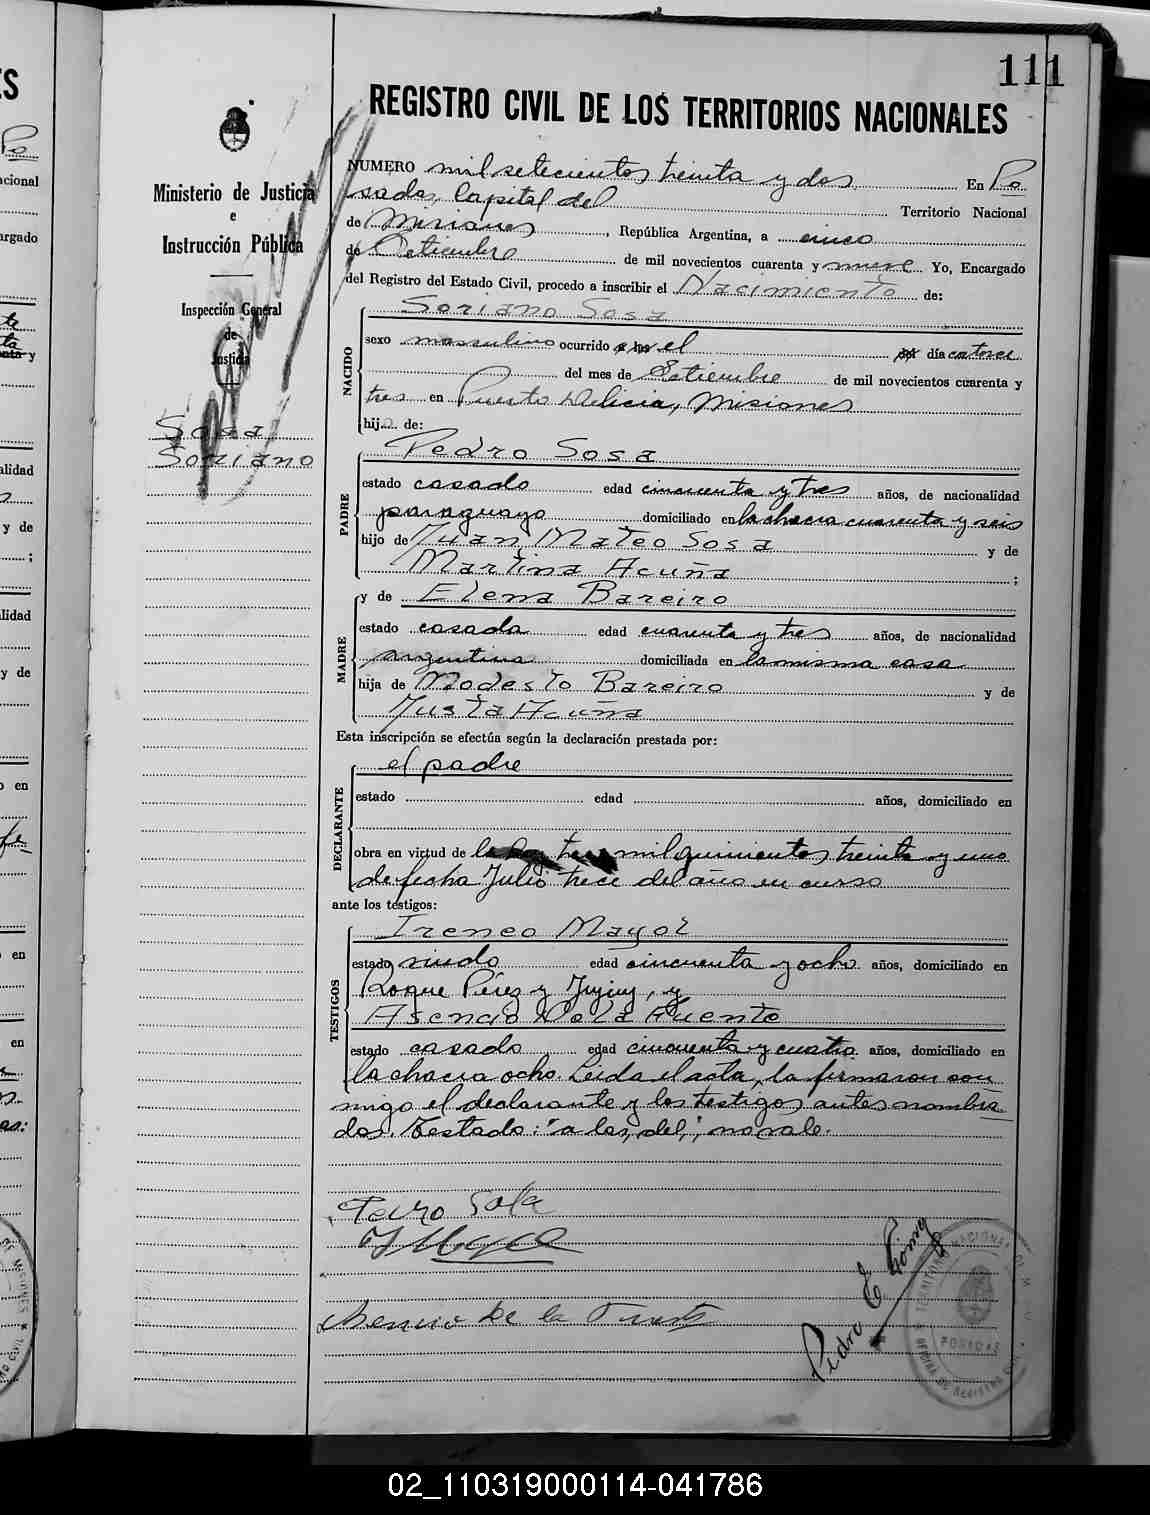 111
REGISTRO CIVIL DE LOS TERRITORIOS NACIONALES
Ministerio de Justicia
e
Instrucción Pública
Inspección General
de
Justicia
Sosa
Soriano
NUMERO mil setecientos treinta y dos En Po
sadas, Capital del Territorio Nacional
de Misiones, República Argentina, a cinco
de Setiembre de mil novecientos cuarenta y nueve Yo, Encargado
del Registro del Estado Civil, procedo a inscribir el Nacimiento de:
NACIDO
Soriano Sosa
sexo masculino ocurrido a las el del día catorce
del mes de Setiembre de mil novecientos cuarenta y
tres en Puerto Delicia, Misiones
hijo de:
PADRE
Pedro Sosa
estado casado edad cincuenta y tres años, de nacionalidad
paraguayo domiciliado en la chacra cuarenta y seis
hijo de Juan Mateo Sosa y de
Martina Acuña ;
MADRE
y de Elena Bareiro
estado casada edad cuarenta y tres años, de nacionalidad
argentina domiciliada en la misma casa
hija de Modesto Bareiro y de
Justa Acuña
Esta inscripción se efectúa según la declaración prestada por:
DECLARANTE
el padre
estado edad años, domiciliado en
obra en virtud de la tres mil quinientos treinta y uno
de fecha Julio trece del año en curso
ante los testigos:
TESTIGOS
Ireneo Mayol
estado viudo edad cincuenta y ocho años, domiciliado en
Roque Pérez y Jujuy, y
Asencio De la Fuente
estado casado edad cincuenta y cuatro años, domiciliado en
la chacra ocho. Leida el acta, la firmaron con
migo el declarante y los testigos antes nombra
dos. Testado: "a las, del,", no vale.
Pedro Sosa
Asencio De la Fuente
Pedro E
TERRITORIO NACIONAL DE MISIONES
POSADAS
OFICINA DE REGISTRO CIVIL
02_110319000114-041786